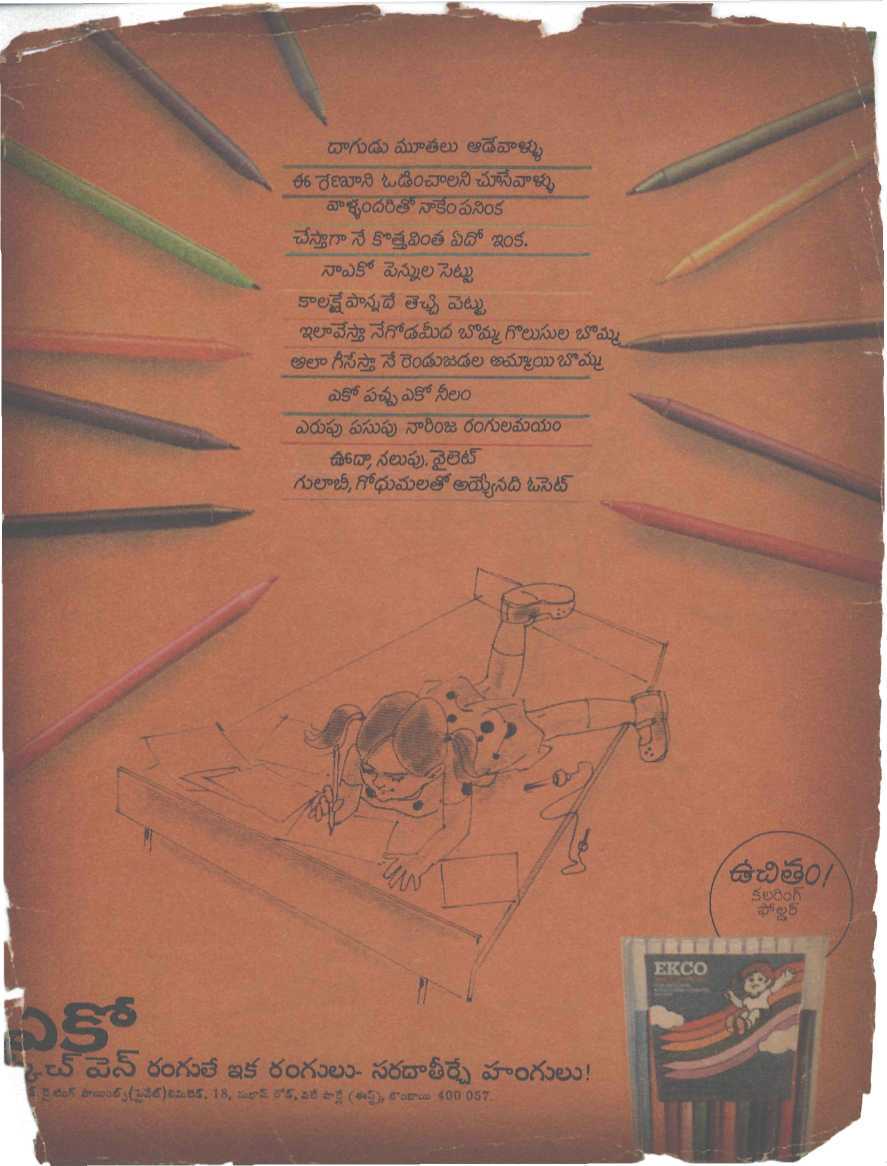 దాగుడు మూతలు ఆడేవాళ్ళు
ఈ శ్రేణూని ఓడించాలని చూసేవాళ్ళు
వాళ్ళందరితో నాకేం పనింక
చేస్తాగా నే కొత్తవింత ఏదో ఇంక.
నాఎకో పెన్నుల సెట్టు
కాలక్షేపాన్నదే తెచ్చి పెట్టు
ఇలావేస్తా నేగోడమీద బొమ్మ గొలుసుల బొమ్మ
అలా గీసేస్తా నే రెండుజడల అమ్మాయి బొమ్మ
ఎకో పచ్చ ఎకో నీలం
ఎరుపు పసుపు నారింజ రంగులమయం
ఊదా, నలుపు, వైలెట్
గులాబీ, గోధుమలతో అయ్యేనది ఓసెట్
ఉచితం!
కలరింగ్
ఫోల్డర్
EKCO
ఎకో
స్కెచ్ పెన్ రంగుతే ఇక రంగులు- సరదాతీర్చే హంగులు!
రైటింగ్ పాయింట్స్ (ప్రైవేట్) లిమిటెడ్, 18, సుభాష్ రోడ్, విలే పార్లే (ఈస్ట్), బొంబాయి 400 057.